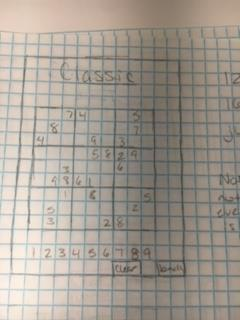 Classic
7 4 5
8 7
4 9 3
5 8 2 9
3 6
4 9 6 1
1 8 5
5 2
3 2 8
1 2 3 4 5 6 7 8 9
Clear
12
16